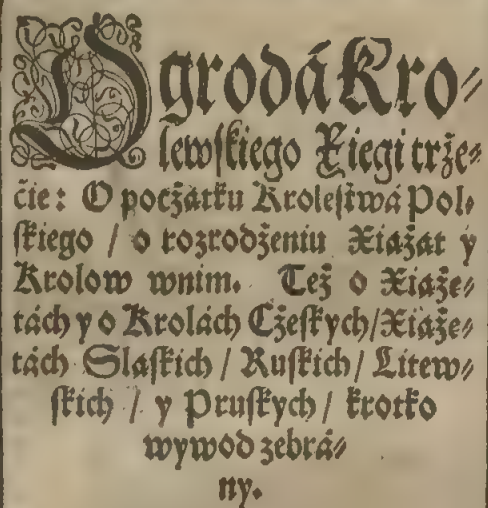 OgrodáKro⸗
lewſkiego Xiegi trże⸗
ćie: O pocżątku Kroleſtwá Pol⸗
ſkiego / o rozrodżeniu Xiążąt y
Krolow wnim. Też o Xiąże⸗
tách y o Krolách Cżeſkych/Xiąże⸗
tách Sląſkich / Ruſkich / Litew⸗
ſkich / y Pruſkych / krotko
wywod zebrá⸗
ny.